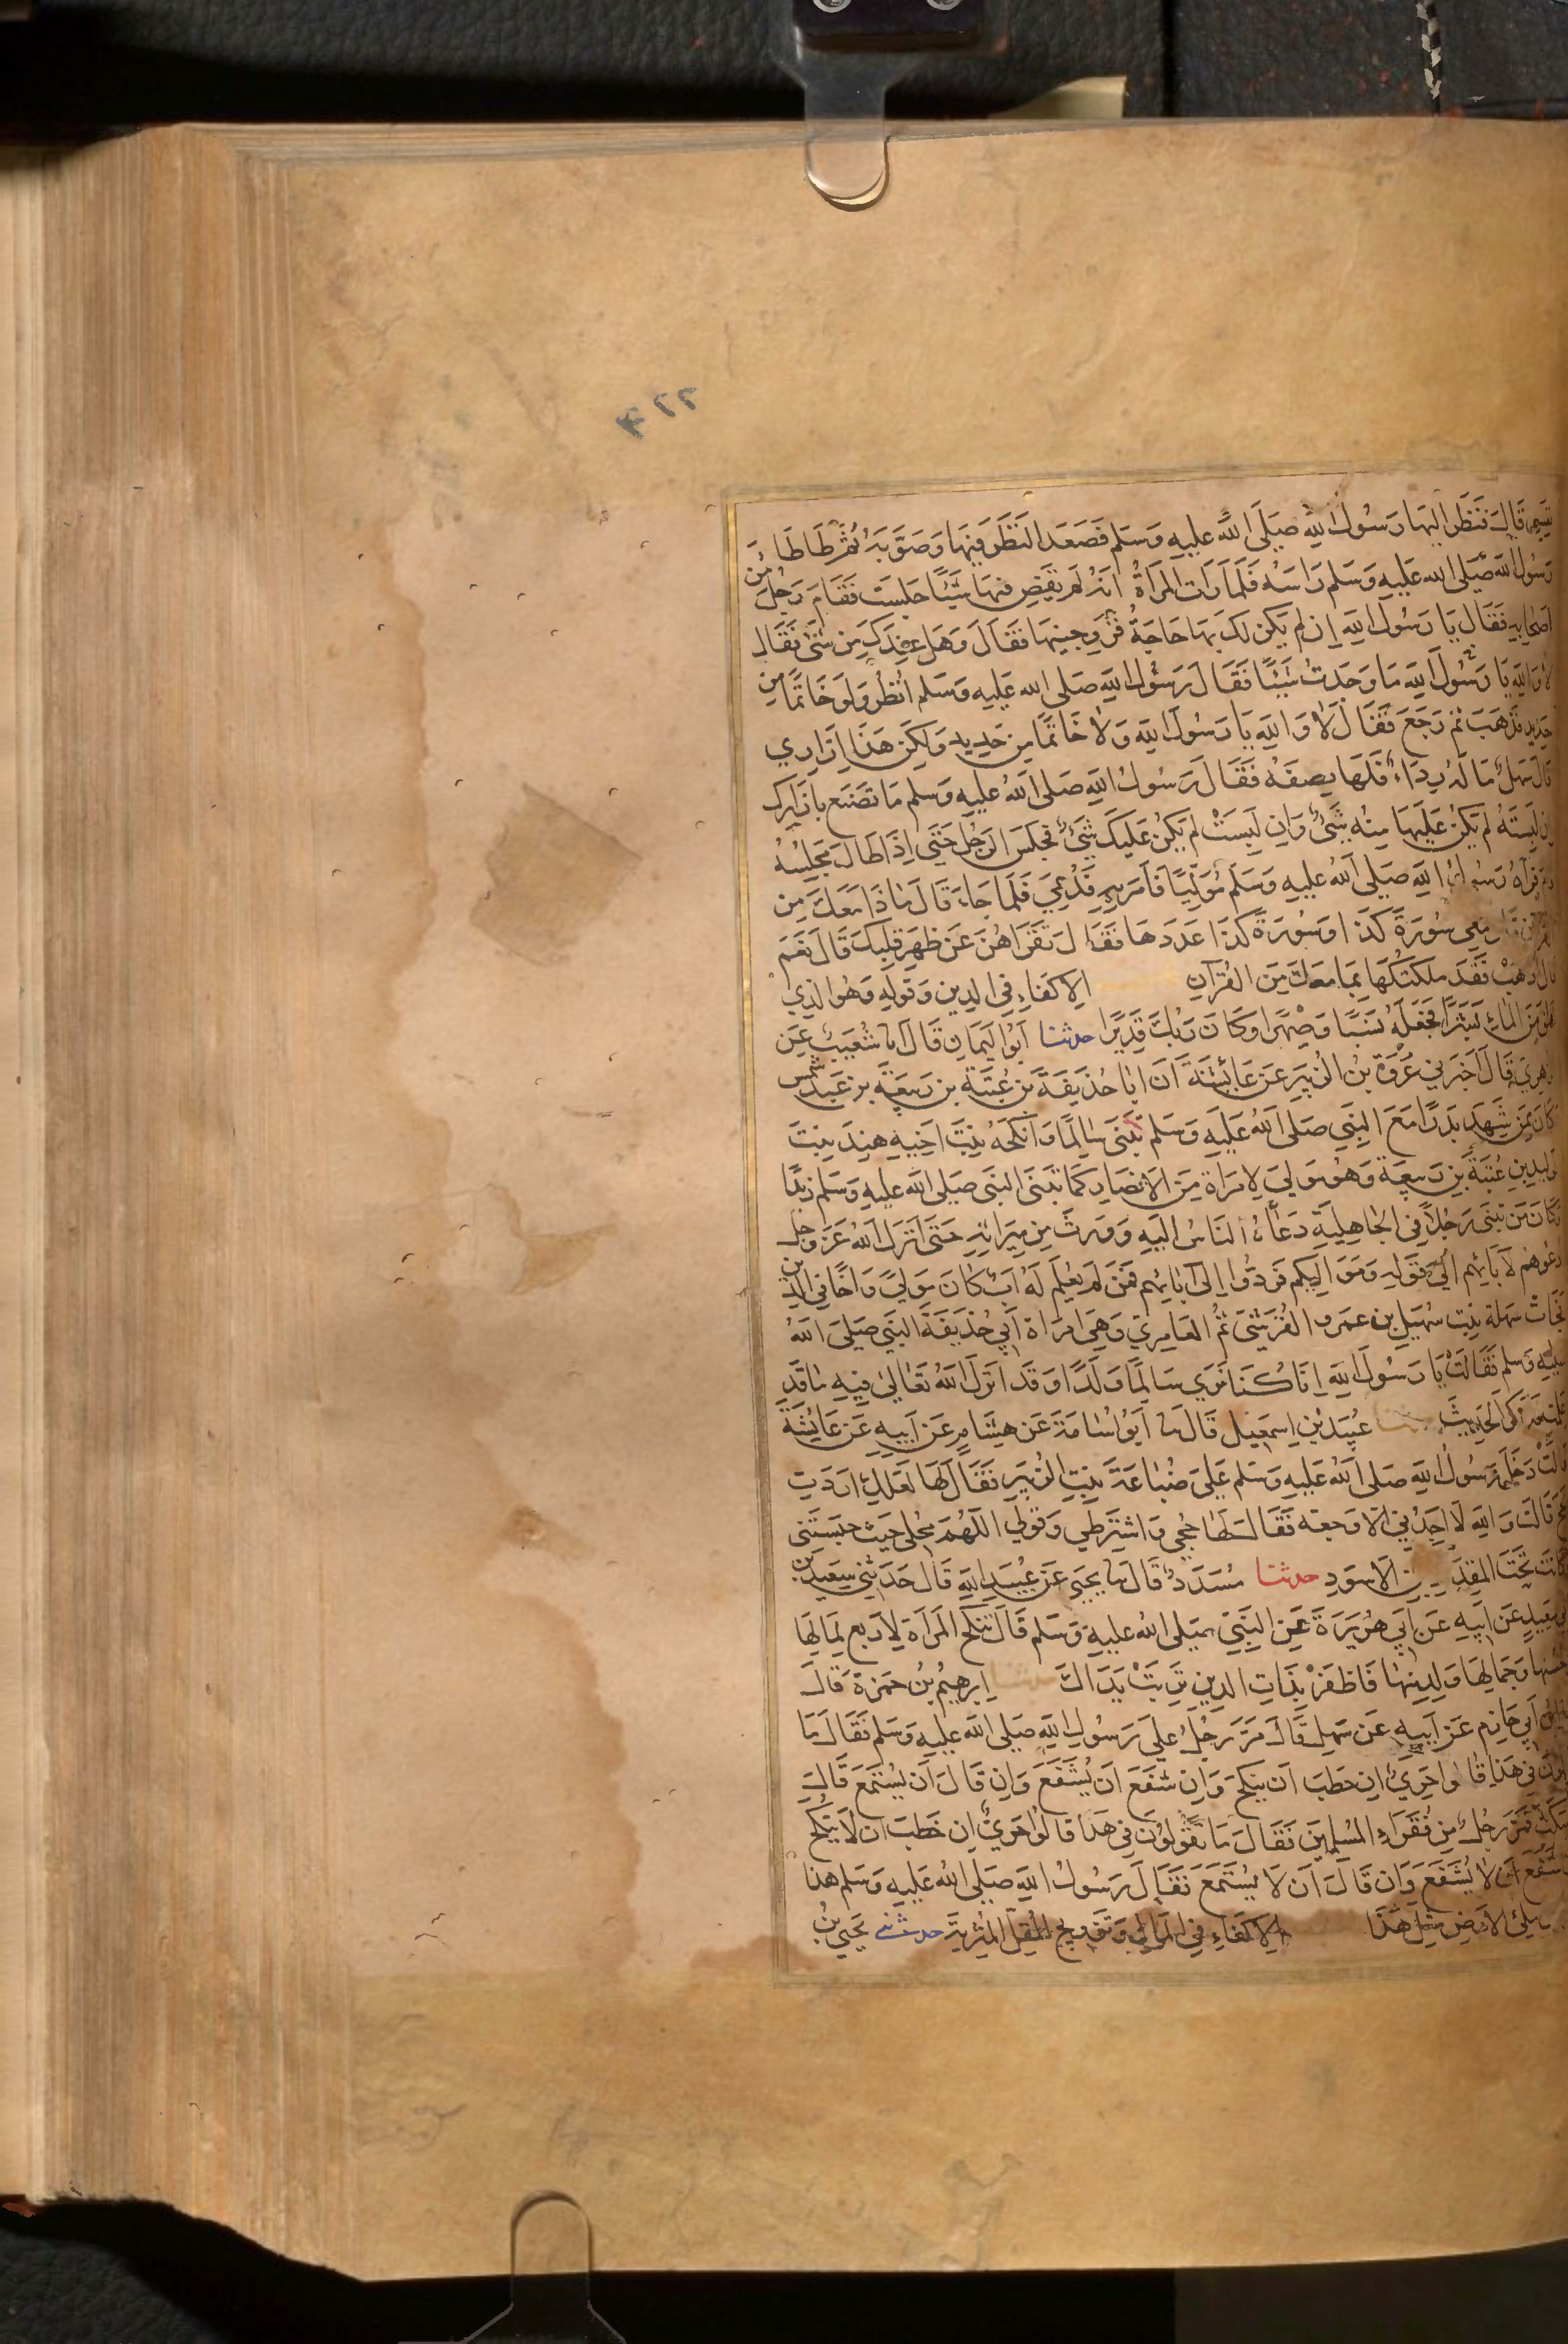 ٣٢٢
قال فنظر اليها رسول الله صلى الله عليه وسلم فصعد النظر فيها وصوبه ثم طاطا
رسول الله صلى الله عليه وسلم راسه فلما رات المراة انه لم يقض فيها شيئا جلست فقام رجل من
اصحابه فقال يا رسول الله ان لم يكن لك بها حاجة فزوجنيها فقال وهل عندك من شئ فقال
لا والله يا رسول الله ما وجدت شيئا فقال رسول الله صلى الله عليه وسلم انظر ولو خاتما من
حديد فذهب ثم رجع فقال لا والله يا رسول الله ولا خاتما من حديد ولكن هذا ازاري
قال سهل ما له رداء فلها نصفه فقال رسول الله صلى الله عليه وسلم ما تصنع بازارك
ان لبسته لم يكن عليها منه شئ وان لبست لم يكن عليك شئ فجلس الرجل حتى اذا طال مجلسه
فرآه رسول الله صلى الله عليه وسلم موليا فامر به فدعي فلما جاء قال ماذا معك من
معي سورة كذا وسورة كذا عددها فقال تقراهن عن ظهر قلبك قال نعم
قال اذهب فقد ملكتكها بما معك من القرآن الاكفاء في الدين وقوله وهو الذي
من الماء بشرا فجعله نسبا وصهرا وكان ربك قديرا حدثنا ابو اليمان قال انا شعيب عن
الزهري قال اخبرني عروة بن الزبير عن عائشة ان ابا حذيفة بن عتبة بن ربيعة بن عبد شمس
كان ممن شهد بدرا مع النبي صلى الله عليه وسلم تبنى سالما وانكحه بنت اخيه هند بنت
الوليد بن عتبة بن ربيعة وهو مولي لامراة من الانصار كما تبنى النبي صلى الله عليه وسلم زيدا
وكان من تبنى رجلا في الجاهلية دعاه الناس اليه وورث من ميراثه حتى انزل الله عز وجل
ادعوهم لآبائهم الى قوله ومواليكم فردوا الى آبائهم فمن لم يعلم له اب كان مولى واخا في الدين
فجاءت سهلة بنت سهيل بن عمرو القرشي ثم العامري وهي امراة ابي حذيفة النبي صلى الله
عليه وسلم فقالت يا رسول الله انا كنا نرى سالما ولدا وقد انزل الله تعالى فيه ما قد
علمت فذكر الحديث عبيد بن اسمعيل قال نا ابو اسامة عن هشام عن ابيه عن عايشة
قالت دخل رسول الله صلى الله عليه وسلم على ضباعة بنت الزبير فقال لها لعلك اردت
الحج قالت والله لا اجدني الا وجعه فقال لها حجي واشترطي وقولي اللهم محلي حيث حبستني
كانت تحت المقداد بن الاسود حدثنا مسدد قال نا يحيى عن عبيد الله قال حدثني سعيد بن
ابي سعيد عن ابيه عن ابي هريرة عن النبي صلى الله عليه وسلم قال تنكح المراة لاربع لمالها
وحسبها وجمالها ولدينها فاظفر بذات الدين تربت يداك ابرهيم بن حمزة قال
ابن ابي حازم عن ابيه عن سهل قال مر رجل على رسول الله صلى الله عليه وسلم فقال ما
تقولون في هذا قالوا حري ان خطب ان ينكح وان شفع ان يشفع وان قال ان يستمع قال
سكت فمر رجل من فقراء المسلمين فقال ما تقولون في هذا قالوا حري ان خطب ان لا ينكح
شفع ان لا يشفع وان قال ان لا يستمع فقال رسول الله صلى الله عليه وسلم هذا
ملئ الارض مثل هذا الاكفاء في المال وتزويج المقل المثرية حدثني يحيى بن